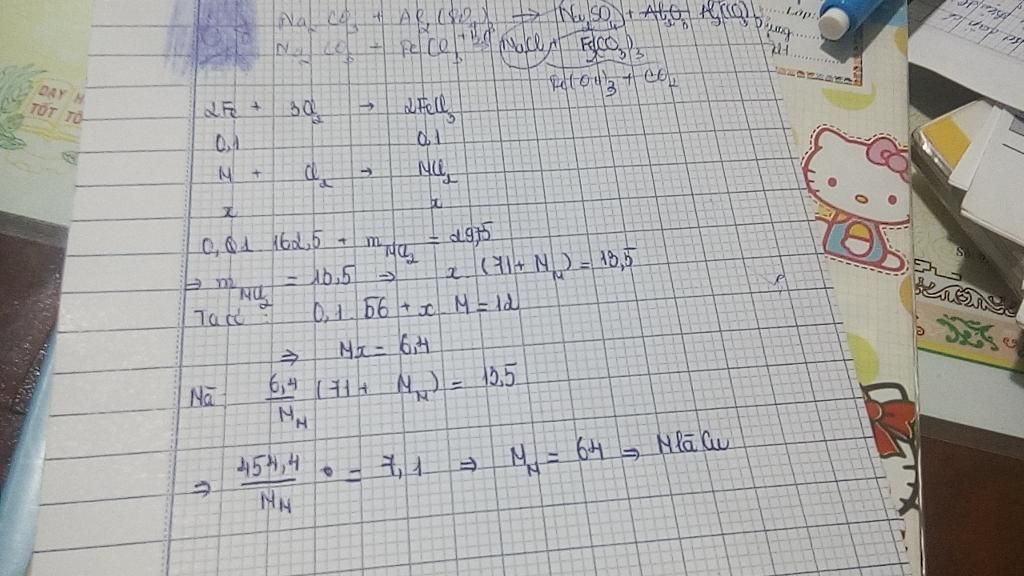 Na₂CO₃ + Al₂(SO₄)₃ → Na₂SO₄ +
Na₂CO₃ + NaCl + Fe₂(CO₃)₃
Fe(OH)₃ + CO₂
2Fe + 3Cl₂ → 2FeCl₃
0,1 0,1
M + Cl₂ → MCl₂
x x
0,1 162,5 + m MCl₂ = 29,75
⇒ m MCl₂ = 13,5 ⇒ x (71 + M_M) = 13,5
Ta có: 0,1 56 + x M = 12
⇒ Mx = 6,4
Mà 6,4/M_M (71 + M_M) = 13,5
⇒ 454,4/M_M = 7,1 ⇒ M_M = 64 ⇒ M là Cu
DẠY
TỐT
Lớp: